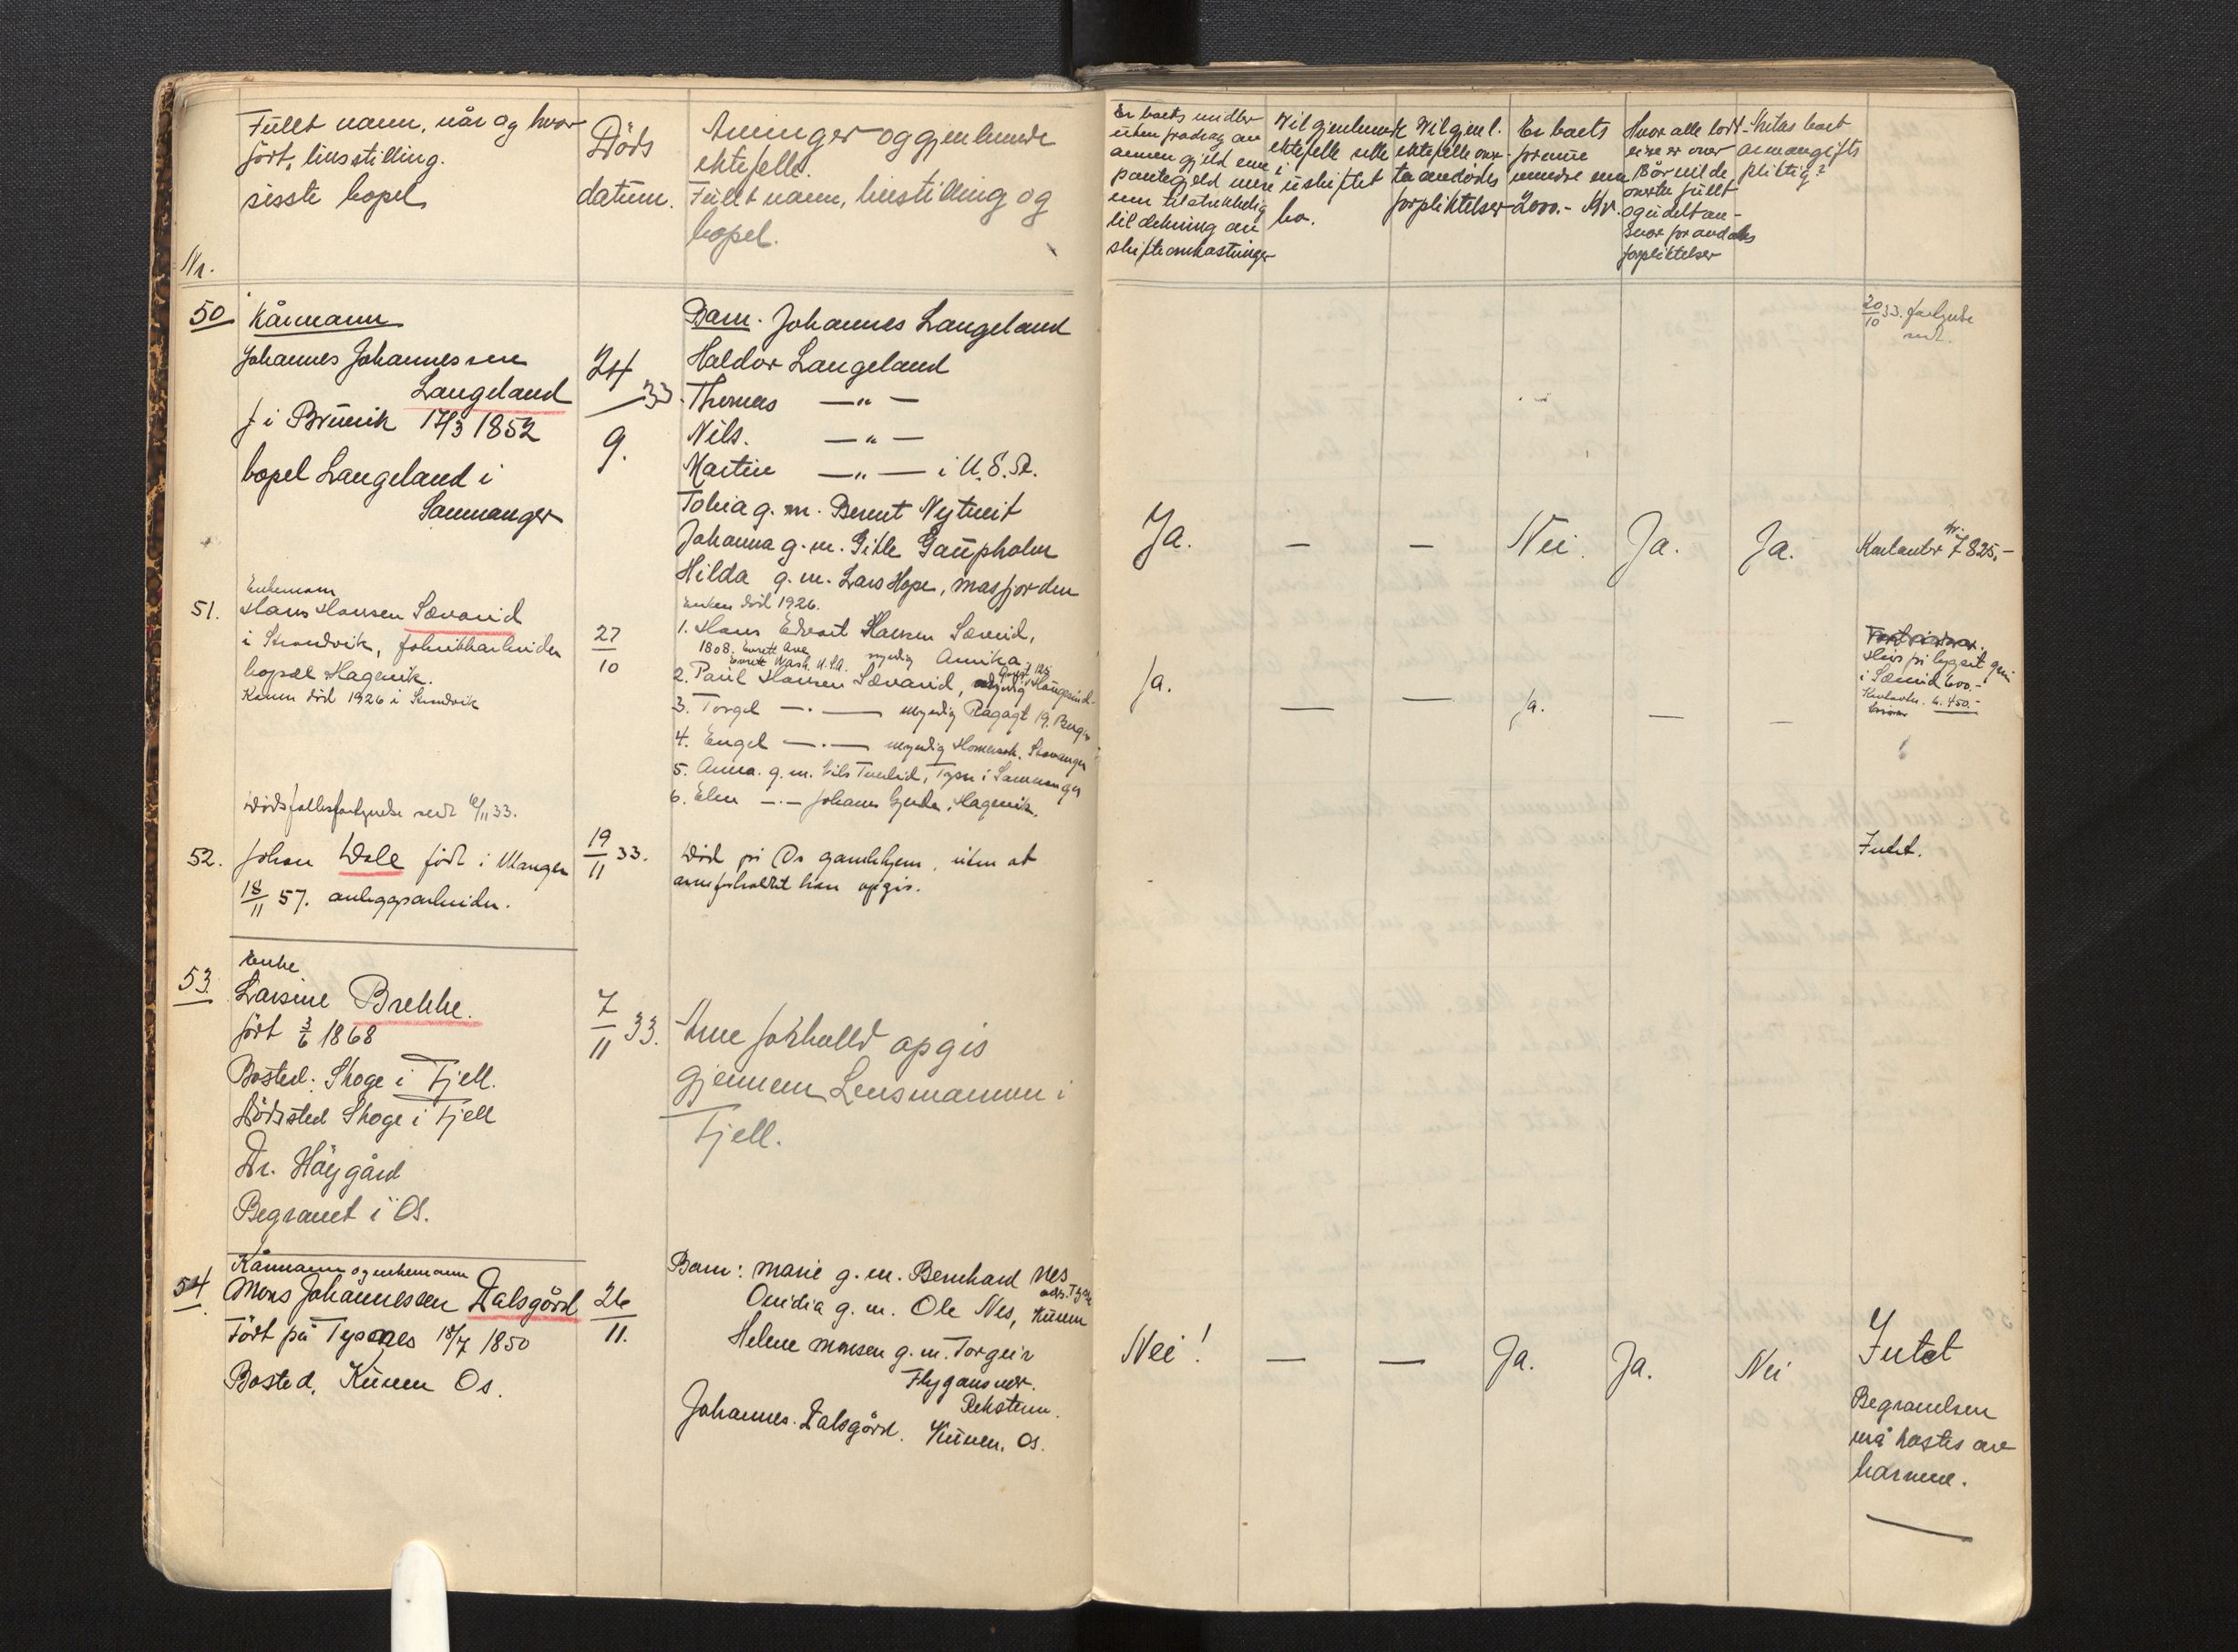 Nr.
Fullt navn, når og hvor
født, livsstilling.
sisste bopel
Döds
datum.
Arvinger og gjenlevende
ektefelle.
Fullt navn, livsstilling og
bopel.
Er boets midler
uten fradrag av
annen gjeld enn
pantegjeld mere
enn tilstrekkelig
til dekning av
skifteomkostninger
Vil gjenlevende
ektefelle sitte i
uskiftet
bo.
Vil gjenl.
ektefelle over-
ta avdødes
forpliktelser
Er boets
formue
mindre enn
2000.- Kr.
Hvor alle lodd-
eiere er over
18 år vil de
overta fullt
og udelt an-
svar for avdødes
forpliktelser
Antas boet
arveavgifts
pliktig?
50
Kårmann
Johannes Johannessen
Langeland
f i Bruvik 17/3 1852
bopel Langeland i
Samnanger
24
33
9.
Barn. Johannes Langeland
Haldor Langeland
Thomas —"—
Nils. —"—
Martin —"— i U.S.A.
Tobia g. m. Bernt Nytveit
Johanna g. m. Gitle Gaupholm
Hilda g. m. Lars Hope, Masfjorden
Ja. — — Nei. Ja. Ja.
20/10 33.
sendt.
Kontanter kr. 7825.-
51.
Enkemann
Hans Hansen Sævareid
i Strandvik, fabrikkarbeider
bopæl Hagavik.
Konen död 1926 i Strandvik
Dødsfallsforkynnelse sendt 6/11 33.
27
10
Enken död 1926.
1. Hans Edvart Hansen Sæveid,
1808. Everett Ave
Everett Wash. U.S.A. myndig Amerika
2. Paul Hansen Sævareid, myndig Haugesund.
3. Torgel —.— myndig 19. Bergen
4. Engel —.— myndig Stavanger
5. Anna. g. m. Nils Tveiteid, Tysse i Samnanger
6. Elen —.— Johann Hagavik.
Ja. — — Ja. — —
i Sæveid 600.-
kr. 450.-
52.
Johan Dale född i Manger
18/11 57. anleggsarbeider.
19/11 33.
Död på Os gamlehjem, uten at
arveforholdet kan opgis.
Intet.
53.
Enke
Larsine Brekke.
født 3/6 1868
Bosted: Skoge i Fjell.
Dödsted Skoge i Fjell
Dr. Höygård
Begravet i Os.
7/11 33.
Arve forhold opgis
gjennem Lensmannen i
Fjell.
54
Kårmann og enkemann
Mons Johannessen Dalsgård
Född på Tysnes 18/7 1850
Bosted, Kuven Os.
26
11.
Barn: Marie g. m. Bernhard Nes
Ovidia g. m. Ole Nes, Kuven
Helene Monsen g. m. Torgeir
Flygansvær.
Reksteren.
Johannes. Dalsgård. Kuven. Os.
Nei! — — Ja. Ja. Nei
Intet
Begravelsen
må kostes av
barnene.